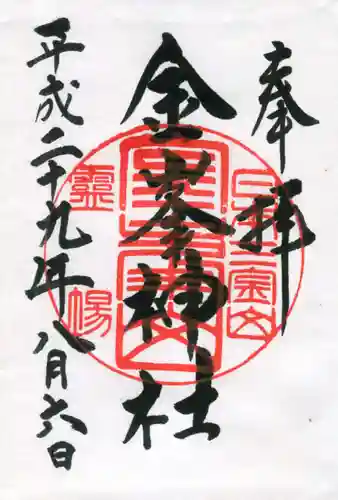 奉拝
金峯神社
平成二十九年八月六日
靈場